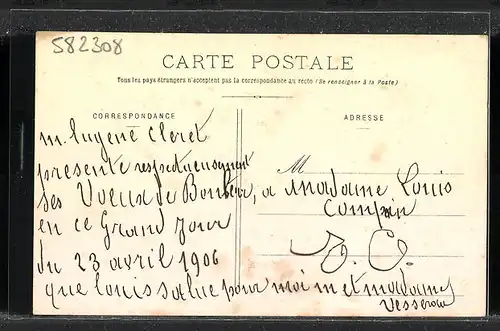 582308
CARTE POSTALE
Tous les pays étrangers n'acceptent pas la correspondance au recto (Se renseigner à la Poste)
CORRESPONDANCE
ADRESSE
m. Eugene Cleret
presente respectueusement
ses Voeux de Bonheur, a
en ce Grand Jour
du 23 avril 1906
que Louis salue pour moi m et madame
M madame Louis
Compin
E. C.